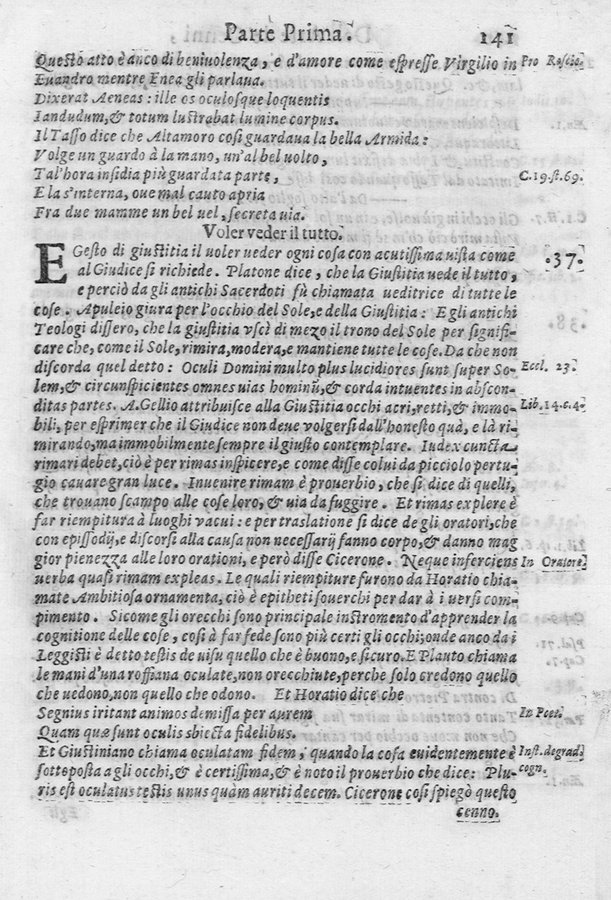 Parte Prima. 141
Questo atto è anco di beniuolenza, e d'amore come espresse Virgilio in Pro Roscio.
Euandro mentre Enea gli parlaua.
Dixerat Aeneas: ille os oculosque loquentis Æn. 1.
Iandudum, & totum lustrabat lumine corpus.
Il Tasso dice che Altamoro cosi guardaua la bella Armida:
Volge un guardo à la mano, un'al bel uolto,
Tal'hora insidia più guardata parte, C.19.st.69.
E la s'interna, oue mal cauto apria
Fra due mamme un bel uel, secreta uia.
Voler veder il tutto.
E Gesto di giustitia il uoler ueder ogni cosa con acutissima uista come .37.
al Giudice si richiede. Platone dice, che la Giustitia uede il tutto,
e perciò da gli antichi Sacerdoti fù chiamata ueditrice di tutte le
cose. Apuleio giura per l'occhio del Sole, e della Giustitia: E gli antichi
Teologi dissero, che la giustitia vscì di mezo il trono del Sole per signifi-
care che, come il Sole, rimira, modera, e mantiene tutte le cose. Da che non
discorda quel detto: Oculi Domini multo plus lucidiores sunt super So- Eccl. 23.
lem, & circunspicientes omnes uias hominũ, & corda intuentes in abscon-
ditas partes. A. Gellio attribuisce alla Giustitia occhi acri, retti, & immo- Lib.14.c.4.
bili, per esprimer che il Giudice non deue volgersi dall'honesto quà, e là ri-
mirando, ma immobilmente sempre il giusto contemplare. Iudex cuncta
rimari debet, ciò è per rimas inspicere, e come disse colui da picciolo pertu-
gio cauare gran luce. Inuenire rimam è prouerbio, che si dice di quelli,
che trouano scampo alle cose loro, & uia da fuggire. Et rimas explere è
far riempitura à luoghi vacui: e per traslatione si dice de gli oratori, che
con epissodij, e discorsi alla causa non necessarij fanno corpo, & danno mag
gior pienezza alle loro orationi, e però disse Cicerone. Neque inferciens In Oratore.
uerba quasi rimam expleas. Le quali riempiture furono da Horatio chia-
mate Ambitiosa ornamenta, ciò è epitheti souerchi per dar à i uersi com-
pimento. Sicome gli orecchi sono principale instromento d'apprender la
cognitione delle cose, così à far fede sono più certi gli occhi; onde anco da i
Leggisti è detto testis de uisu quello che è buono, e sicuro. E Plauto chiama
le mani d'una roffiana oculate, non orecchiute, perche solo credono quello
che uedono, non quello che odono. Et Horatio dice che
Segnius iritant animos demissa per aurem In Poet.
Quam quæ sunt oculis sbiecta fidelibus.
Et Giustiniano chiama oculatam fidem, quando la cosa euidentemente è Inst.degrad.
sottoposta a gli occhi, & è certissima, & è noto il prouerbio che dice: Plu- cogn.
ris est oculatus testis unus quàm auriti decem. Cicerone cosi spiegò questo
cenno.